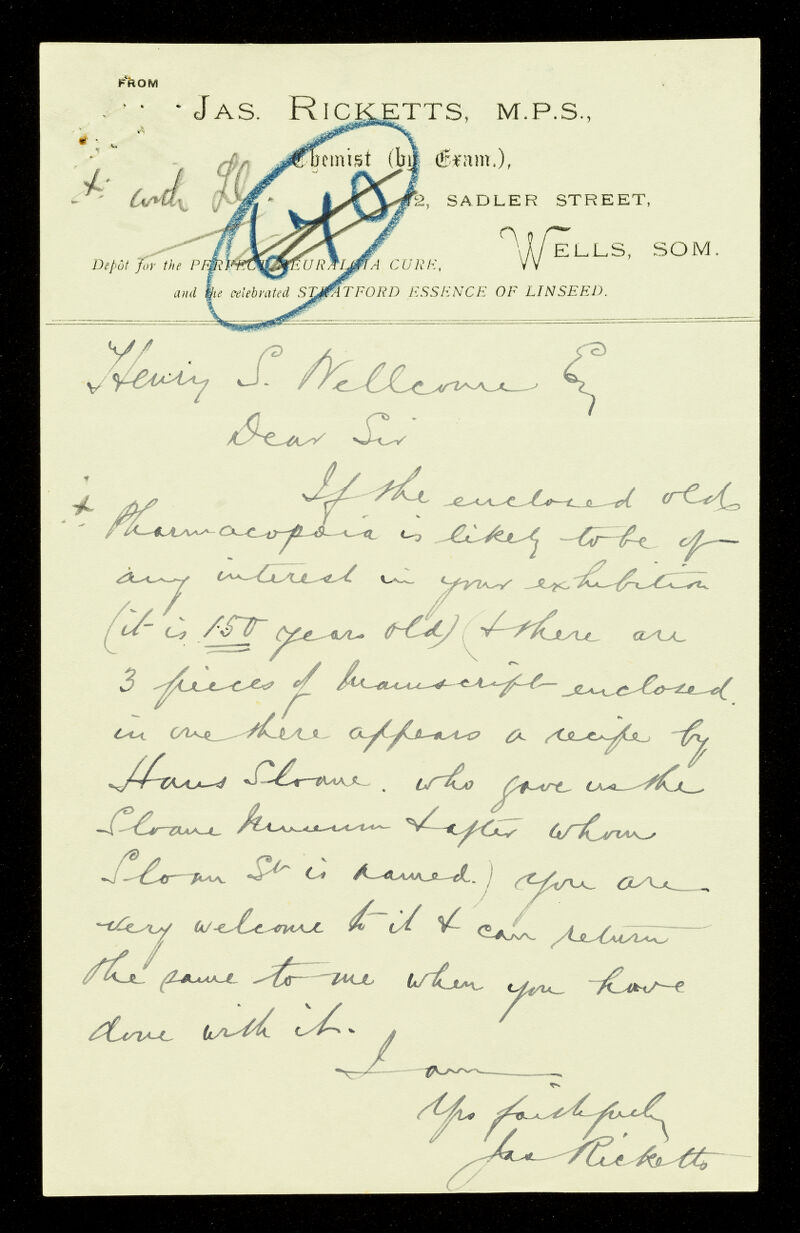 FROM
JAS. RICKETTS, M.P.S.,
Chemist (by Exam.),
+ with
670
12, SADLER STREET,
WELLS, SOM.
Depôt for the PERFECT NEURALGIA CURE,
and the celebrated STRATFORD ESSENCE OF LINSEED.
Henry S. Wellcome Esq
Dear Sir
If the enclosed old
+ Pharmacopœia is likely to be of
any interest in your exhibition
(it is 150 years old) (& there are
3 pieces of Manuscript enclosed.
in one there appears a recipe by
Hans Sloane. who gave us the
Sloane Museum & after whom
Sloan St is named.) You are
very welcome to it & can return
the same to me when you have
done with it.
I am
Yrs faithfully
Jas Ricketts